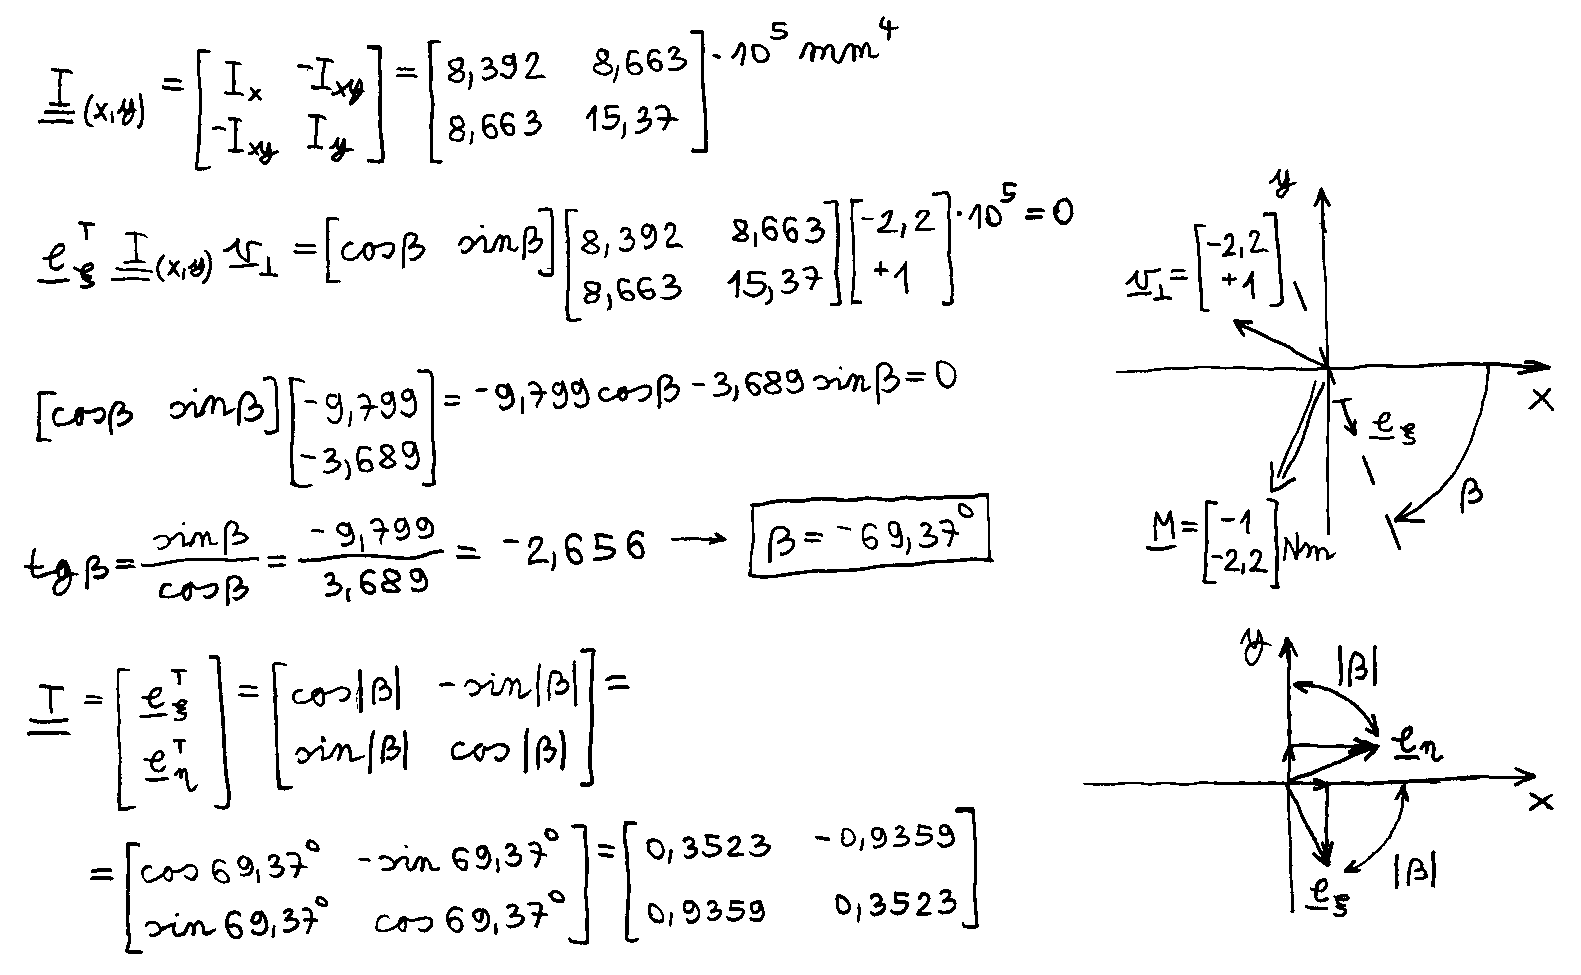 I̳(x,y) = [Ix -Ixy; -Ixy Iy] = [8,392 8,663; 8,663 15,37] · 10⁵ mm⁴
e̲ξᵀ I̳(x,y) v̲⊥ = [cosβ sinβ] [8,392 8,663; 8,663 15,37] [-2,2; +1] · 10⁵ = 0
[cosβ sinβ] [-9,799; -3,689] = -9,799 cosβ - 3,689 sinβ = 0
tgβ = sinβ/cosβ = -9,799/3,689 = -2,656 → β = -69,37°
T̳ = [e̲ξᵀ; e̲ηᵀ] = [cos|β| -sin|β|; sin|β| cos|β|] =
= [cos 69,37° -sin 69,37°; sin 69,37° cos 69,37°] = [0,3523 -0,9359; 0,9359 0,3523]
y
v̲⊥ = [-2,2; +1]
x
e̲ξ
β
M̲ = [-1; -2,2] Nm
y
|β|
e̲η
x
|β|
e̲ξ